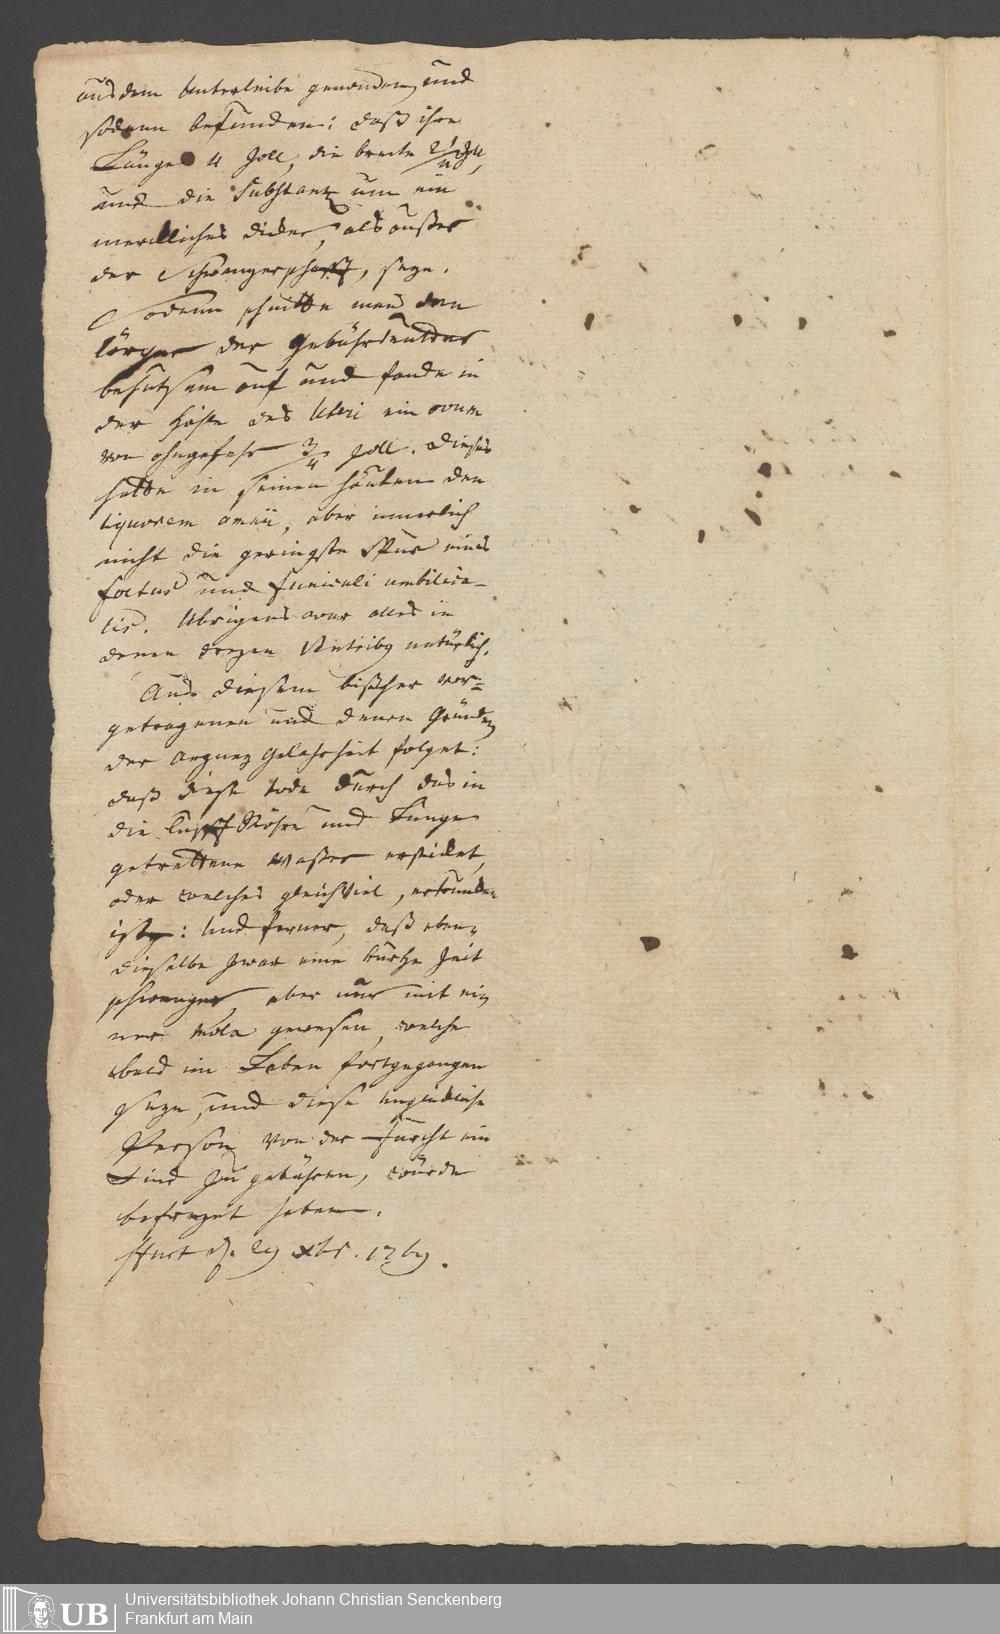 aus dem Unterleibe genomen, und
sodann befunden: daß ihre
Länge 4 Zoll, die breite 2 1/4 Zoll,
und die Substantz um ein
merckliches dicker, als außer
der Schwangerschafft, seye.
Sodenn schnitte man den
Cörper der Gebährmutter
behutsam auf und fande in
der Höhle des Uteri ein ovum
von ohngefehr 3/4 Zoll. Dieses
hatte in seinen häuten den
liquorem amnii, aber innerlich
nicht die geringste Spur eines
foetus und funiculi umbilica-
lis. Ubrigens war alles in
denen dreyen Ventribus natürlich.
Aus diesem bißher vor-
getragenen und denen Gründen
der Artzney Gelahrheit folget:
daß diese tode durch das in
die Lufft Röhre und Lunge
getrettene Waßer ersticket,
oder welches gleichviel, ertruncken
ist: Und ferner, daß eben-
dieselbe zwar eine kurtze Zeit
schwanger aber nur mit ei-
ner Mola gewesen, welche
bald im Leben fortgegangen
seyn, und diese
Person von der Furcht ein
Kind zu gebähren, würde
befreyet haben.
ffurt d. 29 Xbr. 1769.
Universitätsbibliothek Johann Christian Senckenberg
Frankfurt am Main
UB